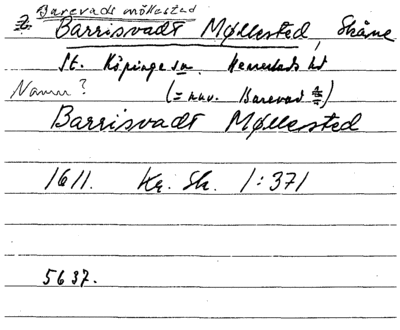 Barevads möllested
Barrisvadt Møllested, Skåne
St. Köpinge sn. Herrestads hd
Namn? (= nuv. Barevad
Barrisvadt Møllested
1611. Kr. Sk. 1:371
5637.